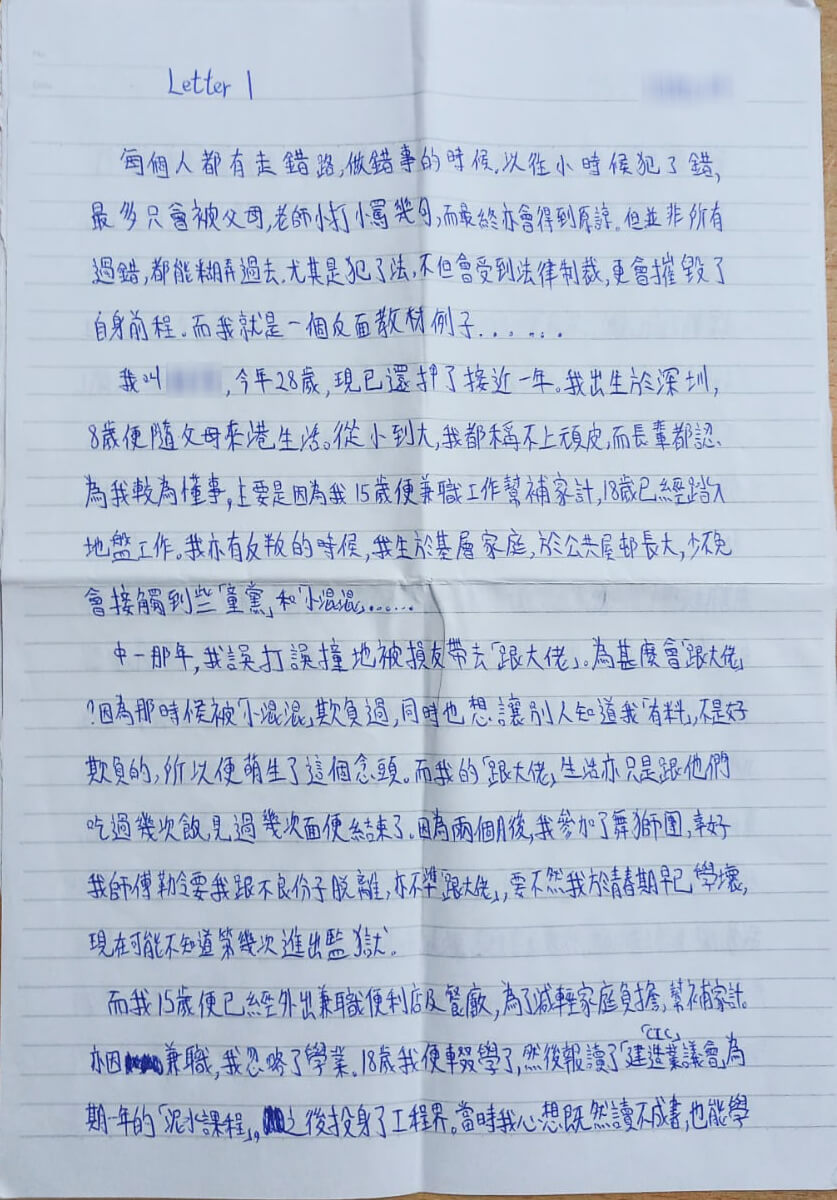 Letter 1
每個人都有走錯路,做錯事的時候.以往小時候犯了錯,
最多只會被父母,老師小打小罵幾句,而最終亦會得到原諒。但並非所有
過錯,都能糊弄過去.尤其是犯了法,不但會受到法律制裁,更會摧毀了
自身前程.而我就是一個反面教材例子......
我叫 ,今年28歲,現已還押了接近一年。我出生於深圳,
8歲便隨父母來港生活。從小到大,我都稱不上頑皮,而長輩都認
為我較為懂事,主要是因為我15歲便兼職工作幫補家計,18歲已經踏入
地盤工作。我亦有反叛的時候,我生於基層家庭,於公共屋邨長大,少不免
會接觸到些「童黨」和「小混混」......
中一那年,我誤打誤撞地被損友帶去「跟大佬」。為甚麼會「跟大佬」
?因為那時候被「小混混」欺負過,同時也想讓別人知道我「有料」,不是好
欺負的,所以便萌生了這個念頭。而我的「跟大佬」生活亦只是跟他們
吃過幾次飯,見過幾次面便結束了。因為兩個月後,我參加了舞獅團,幸好
我師傅勒令要我跟不良份子脫離,亦不準「跟大佬」,要不然我於青春期早已學壞,
現在可能不知道第幾次進出監獄.
而我15歲便已經外出兼職便利店及餐廳,為了減輕家庭負擔,幫補家計.
亦因 兼職,我忽略了學業.18歲我便輟學了,然後報讀了「建造業議會」「CIC」為
期一年的「泥水課程」, 之後投身了工程界。當時我心想既然讀不成書,也能學